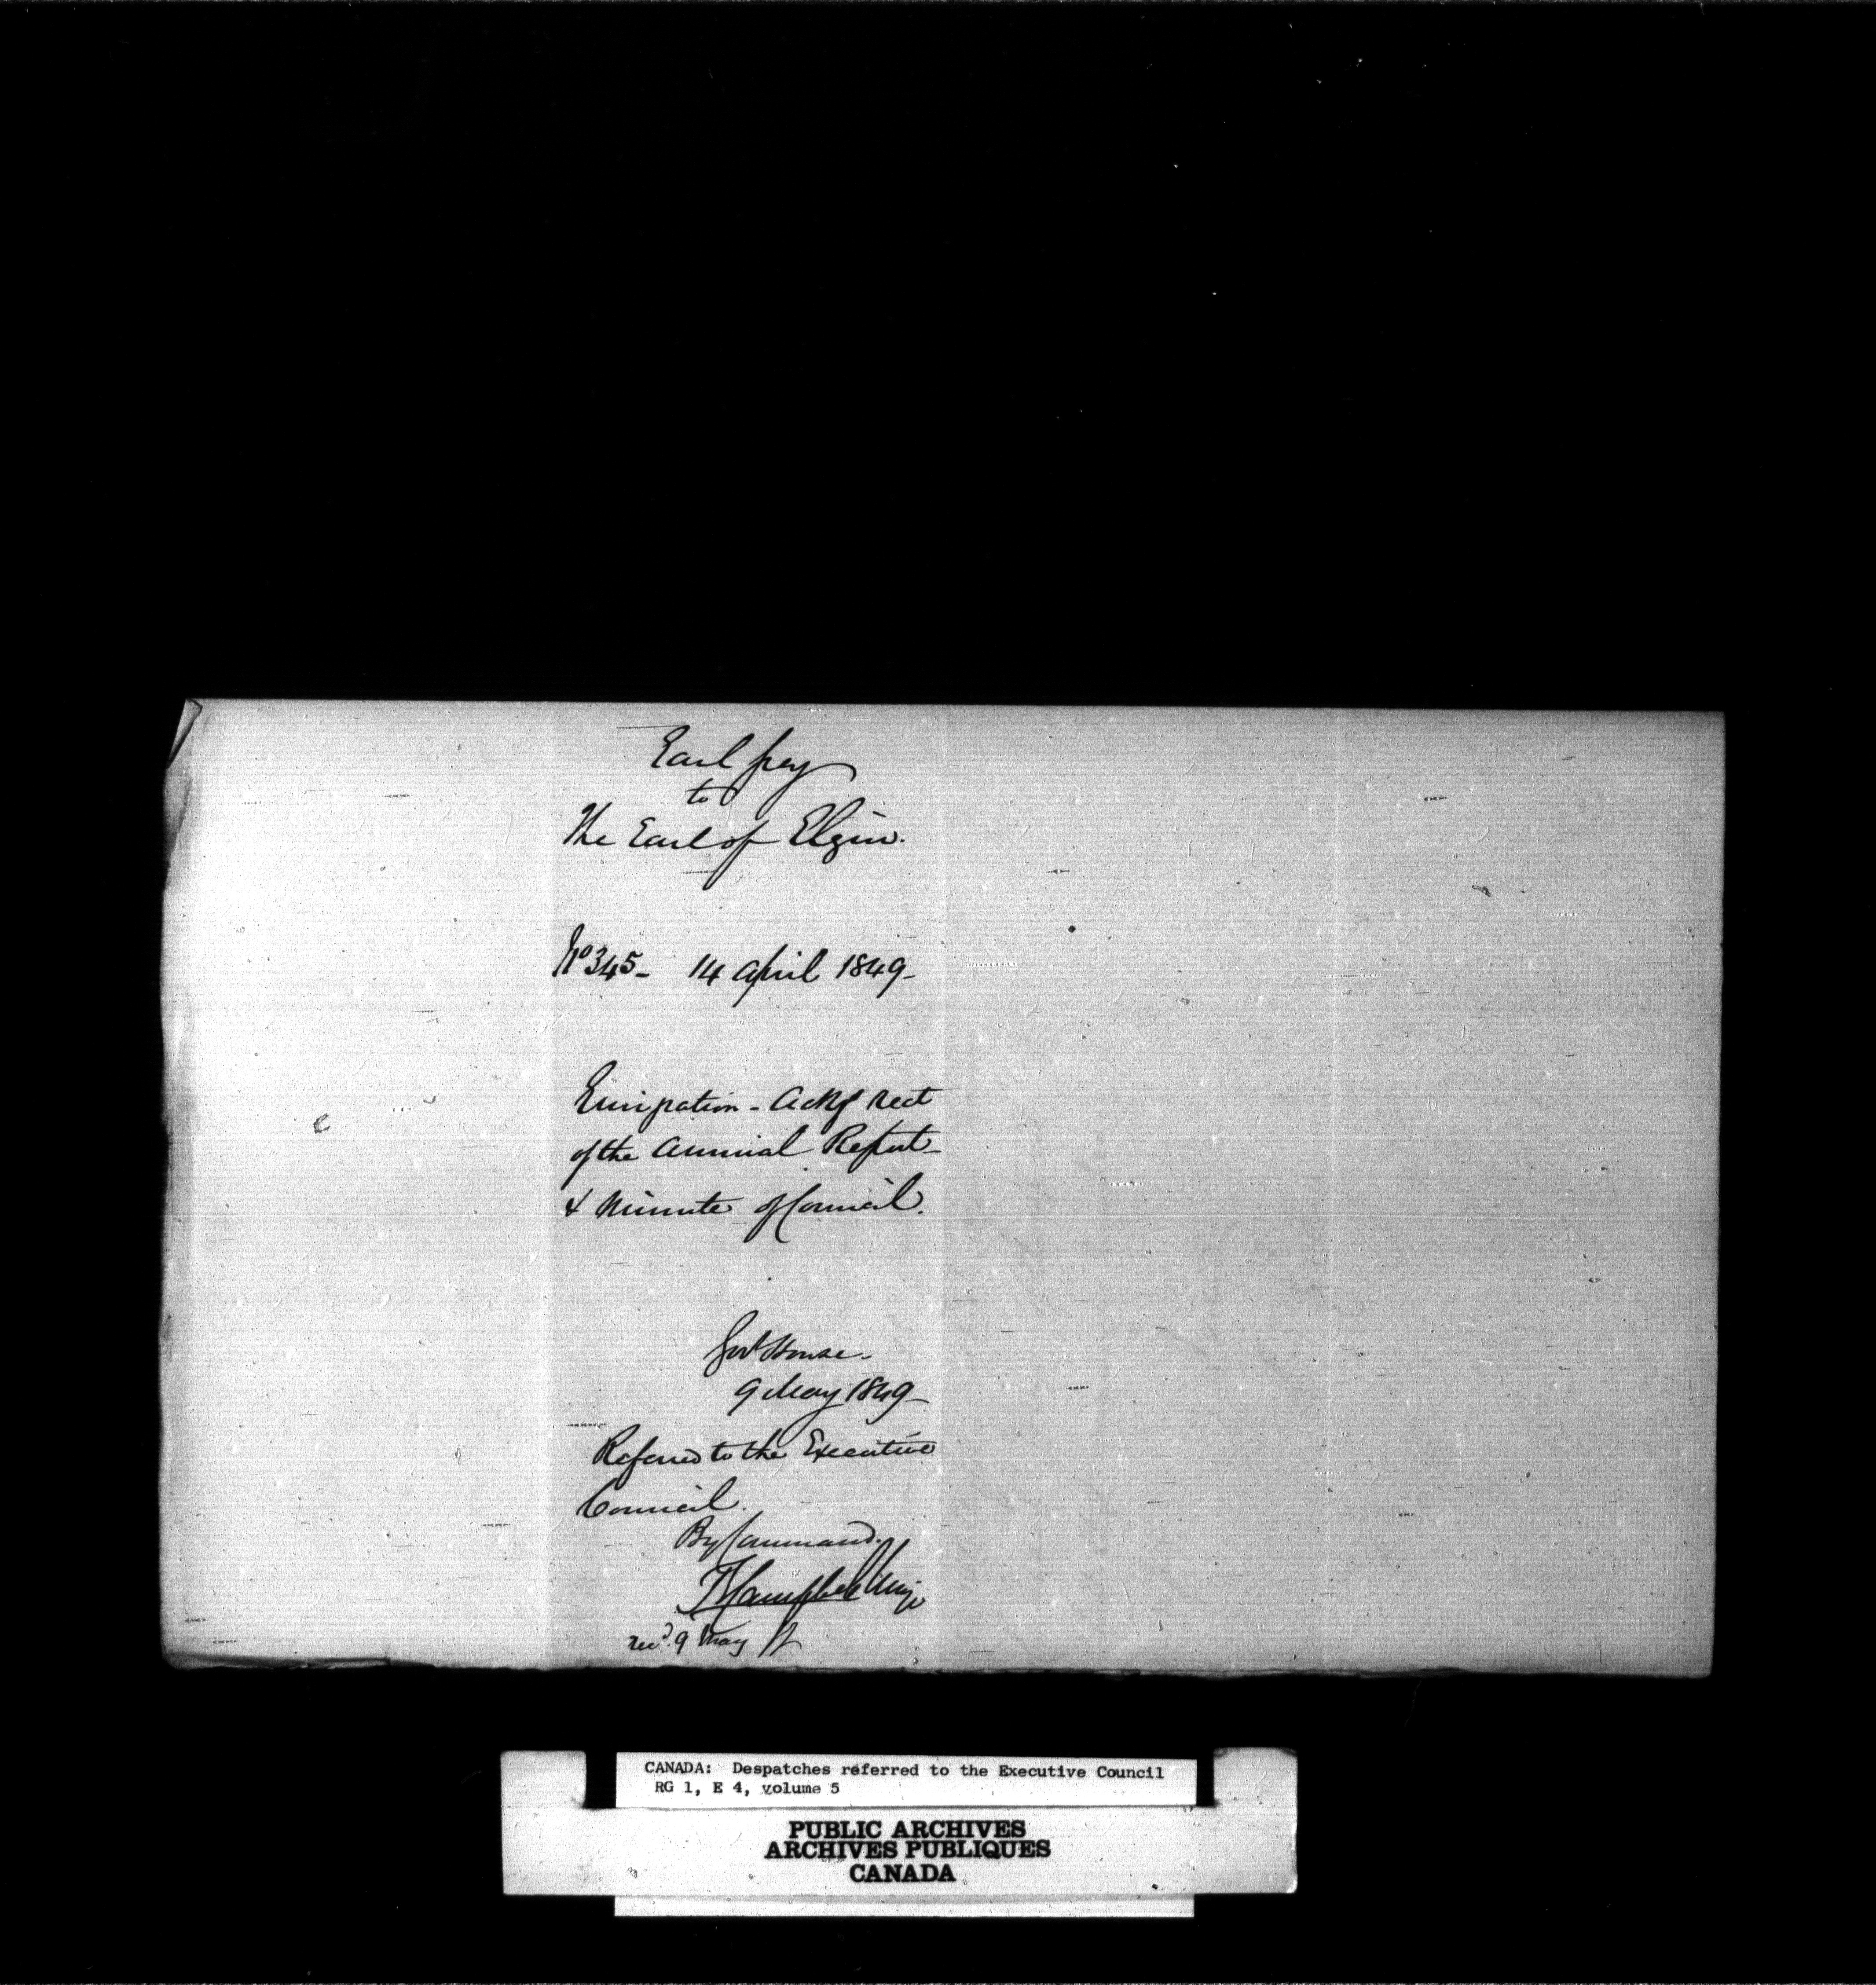 Earl Grey
to
The Earl of Elgin.
No 345- 14 April 1849-
Emigration - Ackg Rect
of the Annual Report-
& Minute of Council.
Govt House-
9 May 1849-
Referred to the Executive
Council.
By Command.
T Campbell Major
Recd. 9 May
CANADA: Despatches referred to the Executive Council
RG 1, E 4, volume 5
PUBLIC ARCHIVES
ARCHIVES PUBLIQUES
CANADA